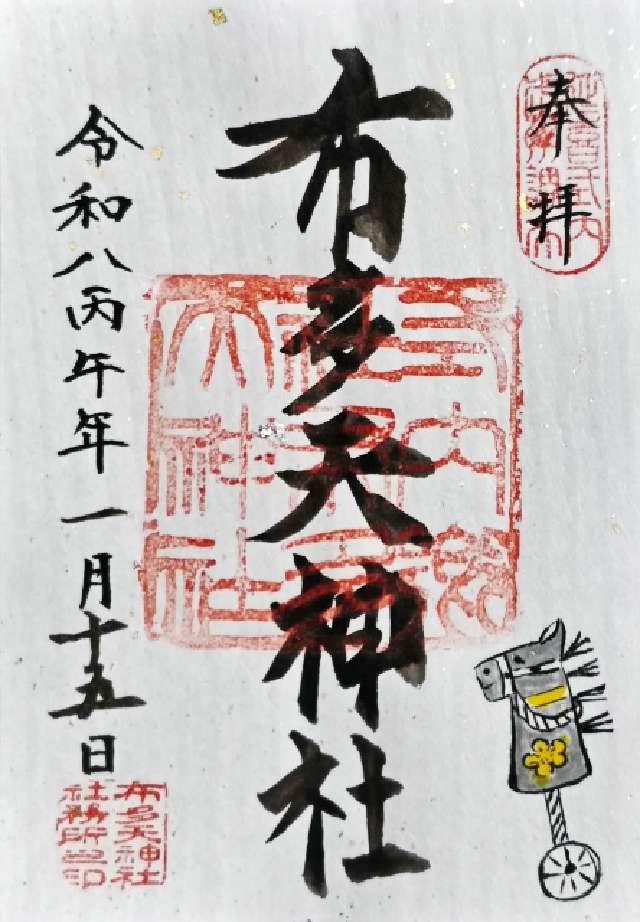 奉拝
布多天神社
令和八丙午年一月十五日
布多天神社
社務所之印